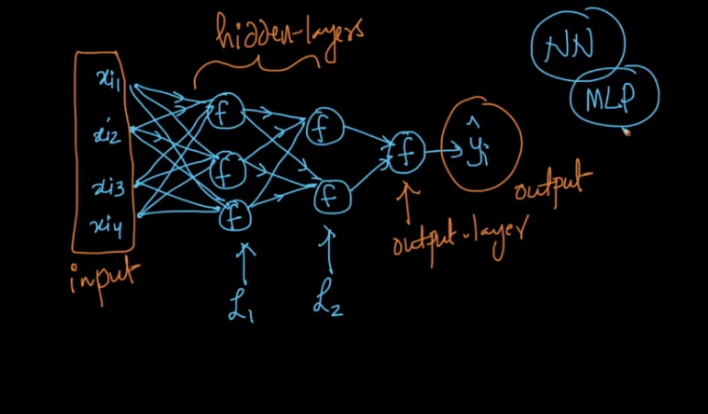 hidden-layers
NN
MLP
xi1
xi2
xi3
xi4
f
f
f
f
f
f
ŷi
input
output
output-layer
L1
L2